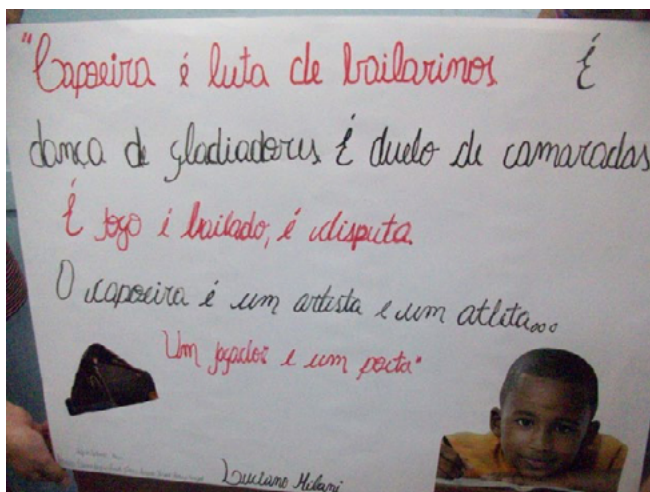 "Capoeira é luta de bailarinos É
dança de gladiadores É duelo de camaradas
É jogo é bailado, é disputa.
O capoeira é um artista e um atleta...
Um jogador e um poeta"
Luciano Milani